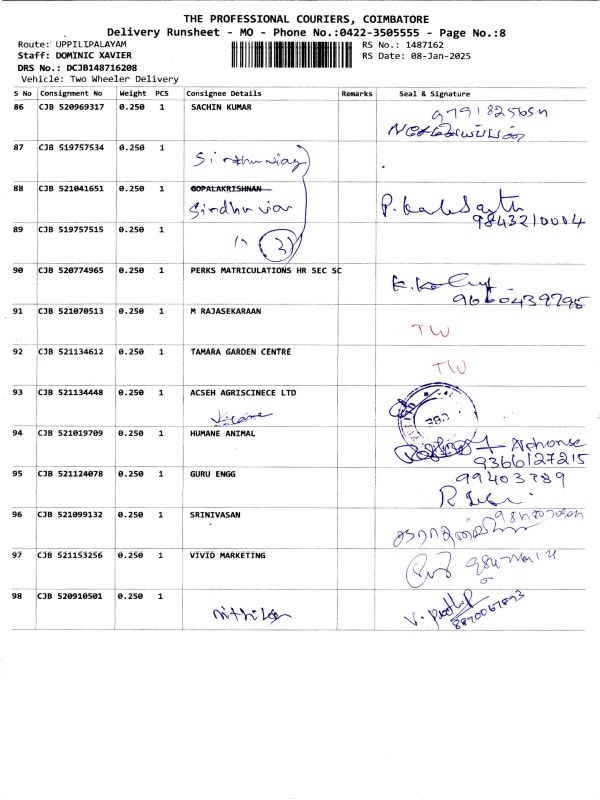 THE PROFESSIONAL COURIERS, COIMBATORE
Delivery Runsheet - MO - Phone No.:0422-3505555 - Page No.:8
Route: UPPILIPALAYAM
RS No.: 1487162
Staff: DOMINIC XAVIER
RS Date: 08-Jan-2025
DRS No.: DCJB148716208
Vehicle: Two Wheeler Delivery
S No Consignment No Weight PCS Consignee Details Remarks Seal & Signature
86 CJB 520969317 0.250 1 SACHIN KUMAR
87 CJB 519757534 0.250 1
88 CJB 521041651 0.250 1 GOPALAKRISHNAN
9843210004
89 CJB 519757515 0.250 1
90 CJB 520774965 0.250 1 PERKS MATRICULATIONS HR SEC SC
91 CJB 521070513 0.250 1 M RAJASEKARAAN
TW
92 CJB 521134612 0.250 1 TAMARA GARDEN CENTRE
TW
93 CJB 521134448 0.250 1 ACSEH AGRISCINECE LTD
94 CJB 521019709 0.250 1 HUMANE ANIMAL
Alphonse
9366127215
95 CJB 521124078 0.250 1 GURU ENGG
96 CJB 521099132 0.250 1 SRINIVASAN
97 CJB 521153256 0.250 1 VIVID MARKETING
98 CJB 520910501 0.250 1